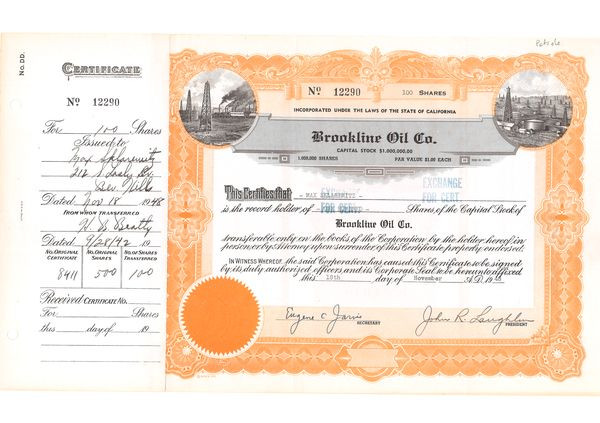 Petrole
No. DD.
CERTIFICATE
No 12290
For 100 Shares
Issued to
Max
212 S
Bev. Hills
Dated Nov 18 1948
FROM WHOM TRANSFERRED
H. S. Beatty
Dated 9/28/42 19
NO. ORIGINAL CERTIFICATE
NO. ORIGINAL SHARES
NO. OF SHARES TRANSFERRED
8411 500 100
Received CERTIFICATE NO.
For Shares
this day of 19
No 12290
100 SHARES
INCORPORATED UNDER THE LAWS OF THE STATE OF CALIFORNIA
Brookline Oil Co.
CAPITAL STOCK $1,000,000.00
1,000,000 SHARES
PAR VALUE $1.00 EACH
EXCHANGE
FOR CERT.
This Certifies that - MAX
is the record holder of Shares of the Capital Stock of
Brookline Oil Co.
transferable only on the books of the Corporation by the holder hereof in
person or by Attorney upon surrender of this Certificate properly endorsed.
IN WITNESS WHEREOF, the said Corporation has caused this Certificate to be signed
by its duly authorized officers and its Corporate Seal to be hereunto affixed
this 18th day of November A.D. 1948
Eugene C. Jarvis
SECRETARY
John R. Laughlin
PRESIDENT